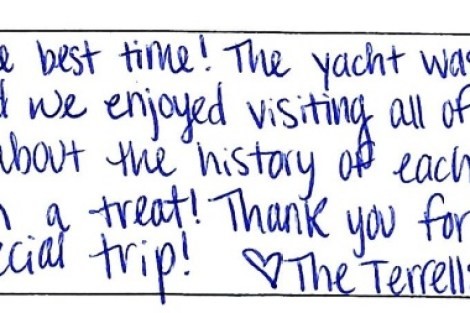 e best time! The yacht was
d we enjoyed visiting all of
about the history of each
h a treat! Thank you for
ecial trip! ♡The Terrells